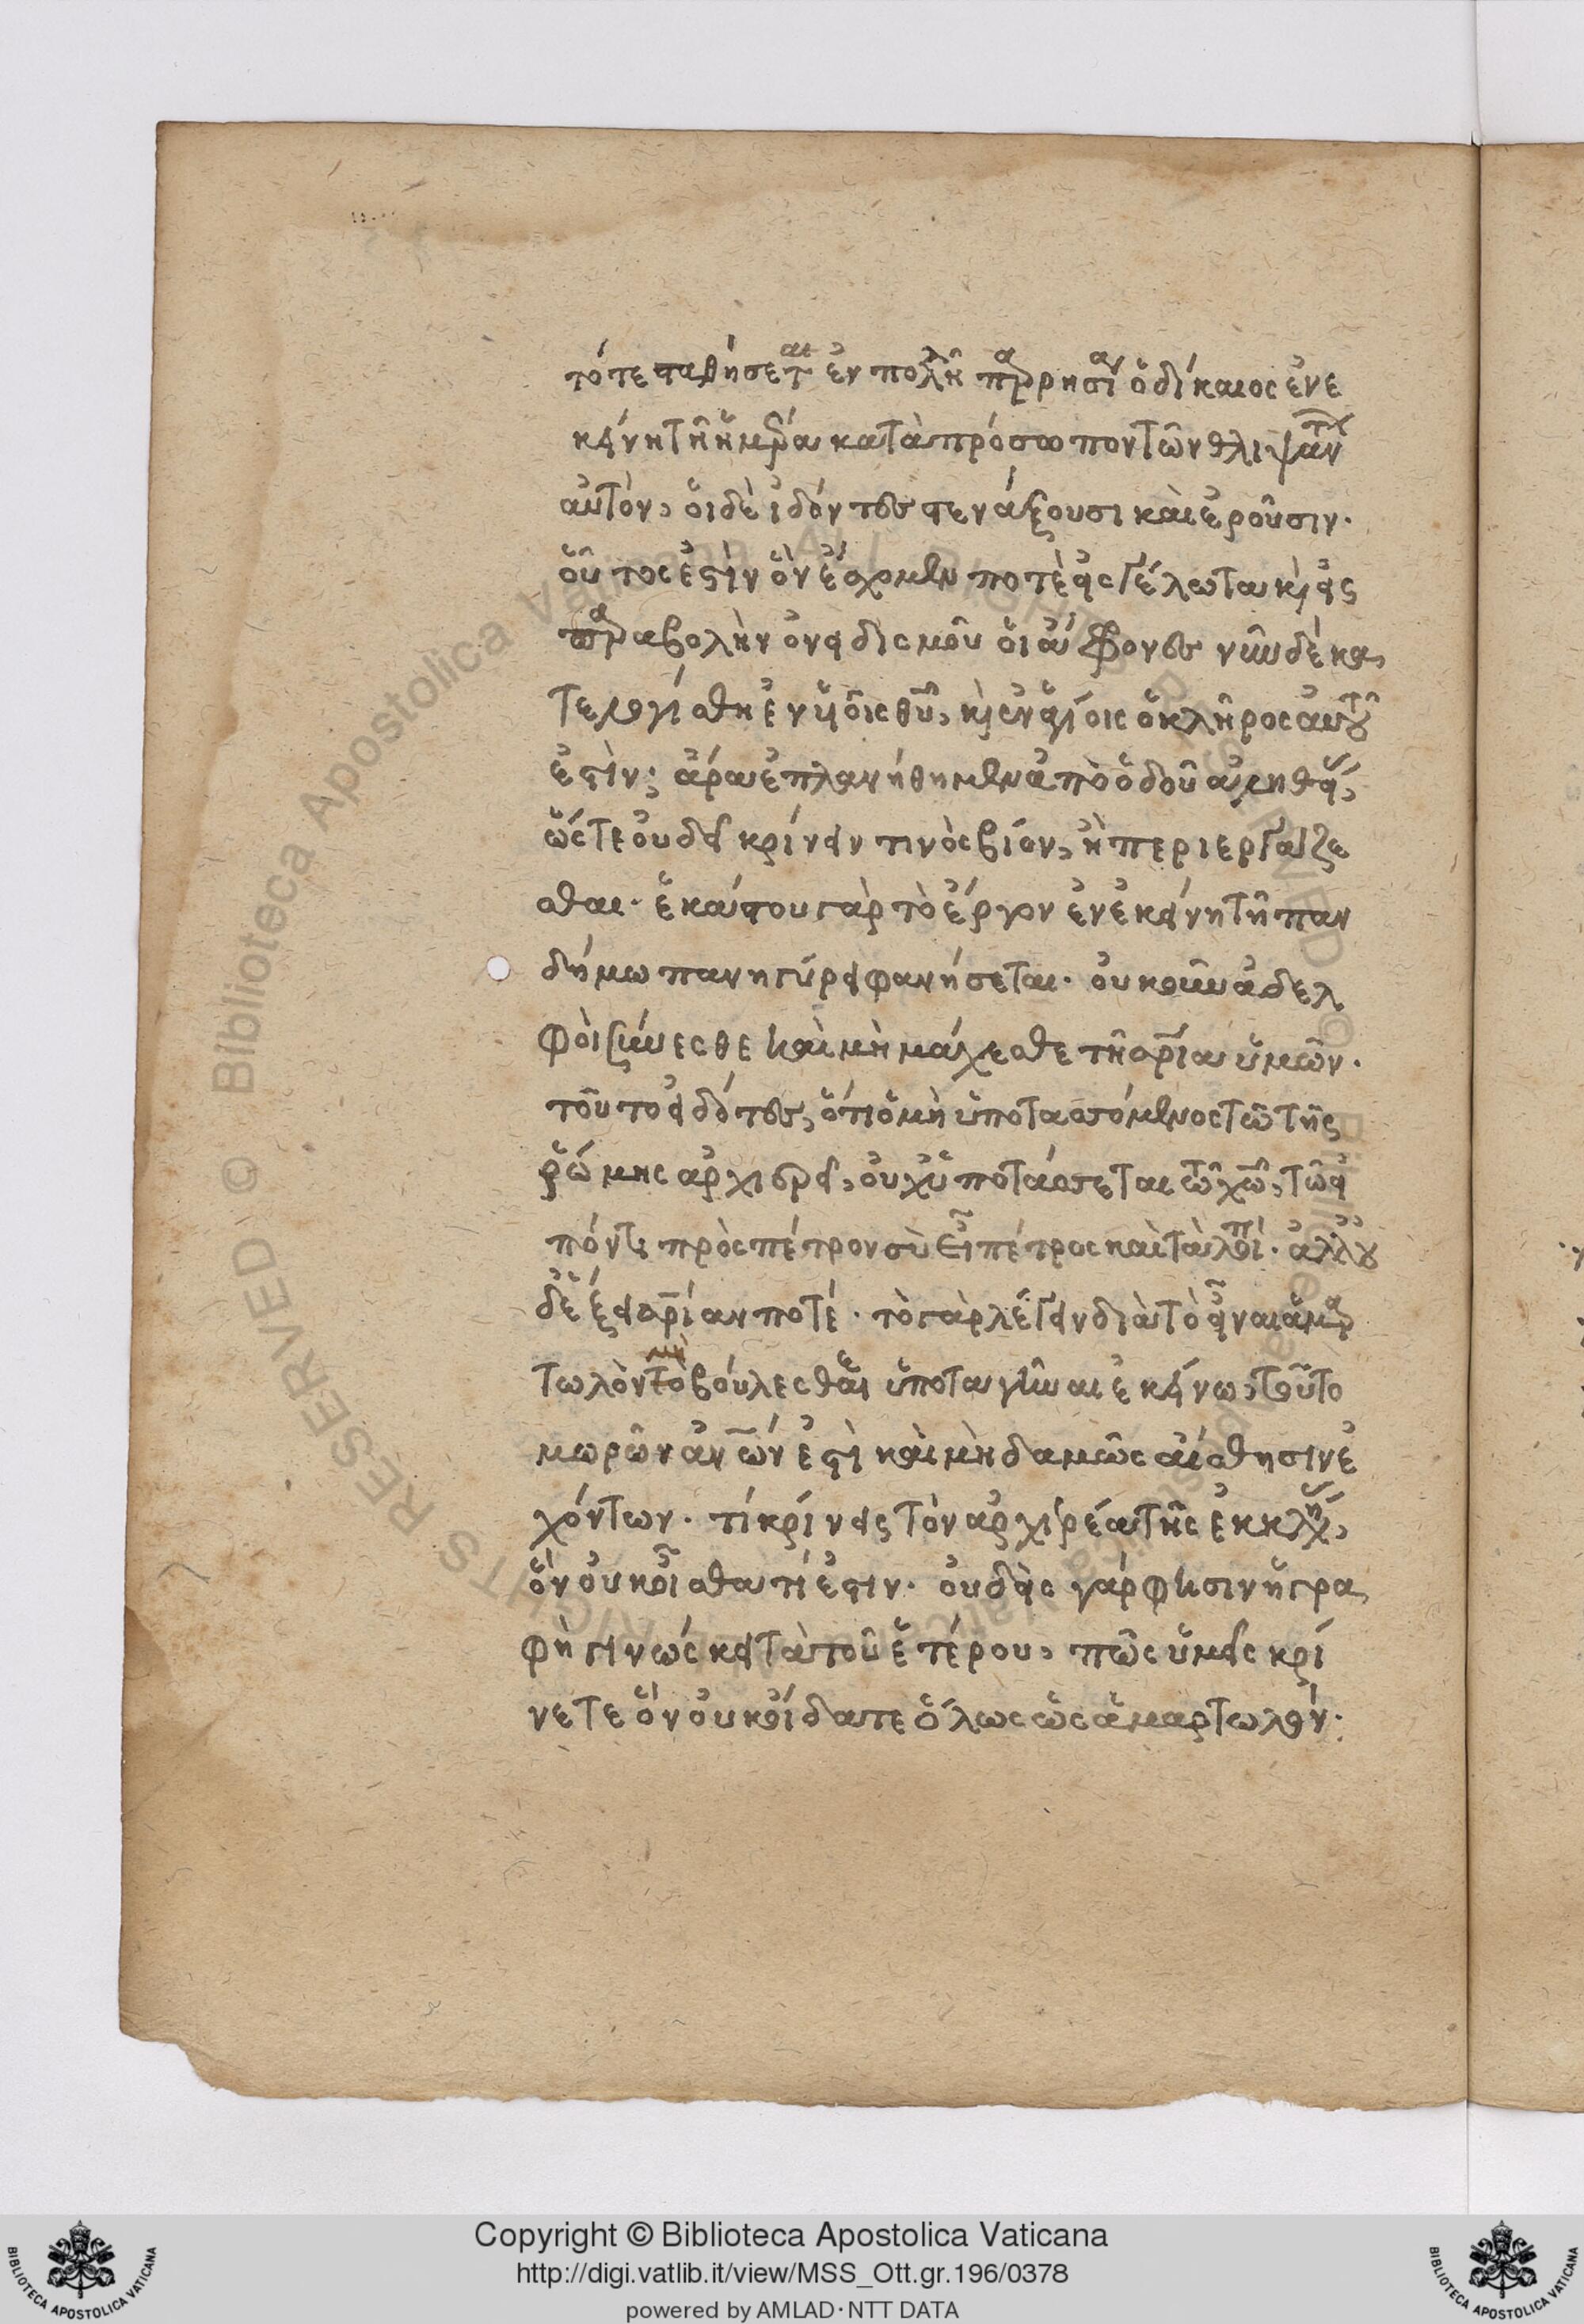 τότε σταθήσεται ἐν πολλῇ παρρησίᾳ ὁ δίκαιος ἐνε
κείνη τῆ ἡμέρα κατὰ πρόσωπον τῶν θλιψάντων
αὐτόν, ὅι δὲ ἰδόντες στενάξουσι καὶ ἐροῦσιν·
ὅυτος ἐστὶν ὃν ἔσχομεν ποτὲ εἰς γέλωτα καὶ εἰς
παραβολὴν ὀνειδισμοῦ ὁι ἄφρονες νῦν δὲ κα
τελογίσθη ἐν ὑιοῖς θῦ, καὶ ἐν ἁγίοις ὁ κλῆρος αὐτοῦ
ἐστὶν; ἄρα ἐπλανήθημεν ἀπὸ ὁδοῦ ἀληθείας,
ὥστε οὐ δεῖ κρίνειν τινὸς βίον, ἢ περιεργάζε
σθαι· ἑκάστου γὰρ τὸ ἔργον ἐν ἐκείνη τῆ παν
δήμω πανηγύρει φανήσεται· οὐκοῦν ἀδελ
φοὶ ζύνεσθε καὶ μὴ μάχεσθε τῆ σρίᾳ ὑμῶν·
τοῦτο εἰδότες, ὅτι ὁ μὴ ὑποτασσόμενος τῶ τῆς
ῥώμης ἀρχιερεῖ, οὐχ ὑποτάσσεται τῶ χῶ, τῶ εἰ
πόντι πρὸς πέτρον σὺ εἶ πέτρος καὶ τὰ λοιπά· ἀλλ οὐ
δὲ ἕξει σρίαν ποτέ· τὸ γὰρ λέγειν διὰ τὸ εἶναι ἁμαρ
τωλὸν τὸ μὴ βούλεσθαι ὑποταγῆναι ἐκείνω, τοῦτο
μωρῶν ἀνῶν ἐστὶ καὶ μὴδαμῶς αἴσθησιν ἐ
χόντων· τί κρίνεις τὸν ἀρχιερέα τῆς ἐκκλησίας,
ὃν οὐκ οἶσθα τί ἐστιν· οὐδεὶς γάρ φησιν ἡ γρα
φὴ γινώσκει τὰ τοῦ ἑτέρου, πῶς ὑμεῖς κρί
νετε ὃν οὐκ οἴδατε ὅλως ὡς ἁμαρτωλόν·
Copyright © Biblioteca Apostolica Vaticana
http://digi.vatlib.it/view/MSS_Ott.gr.196/0378
powered by AMLAD·NTT DATA